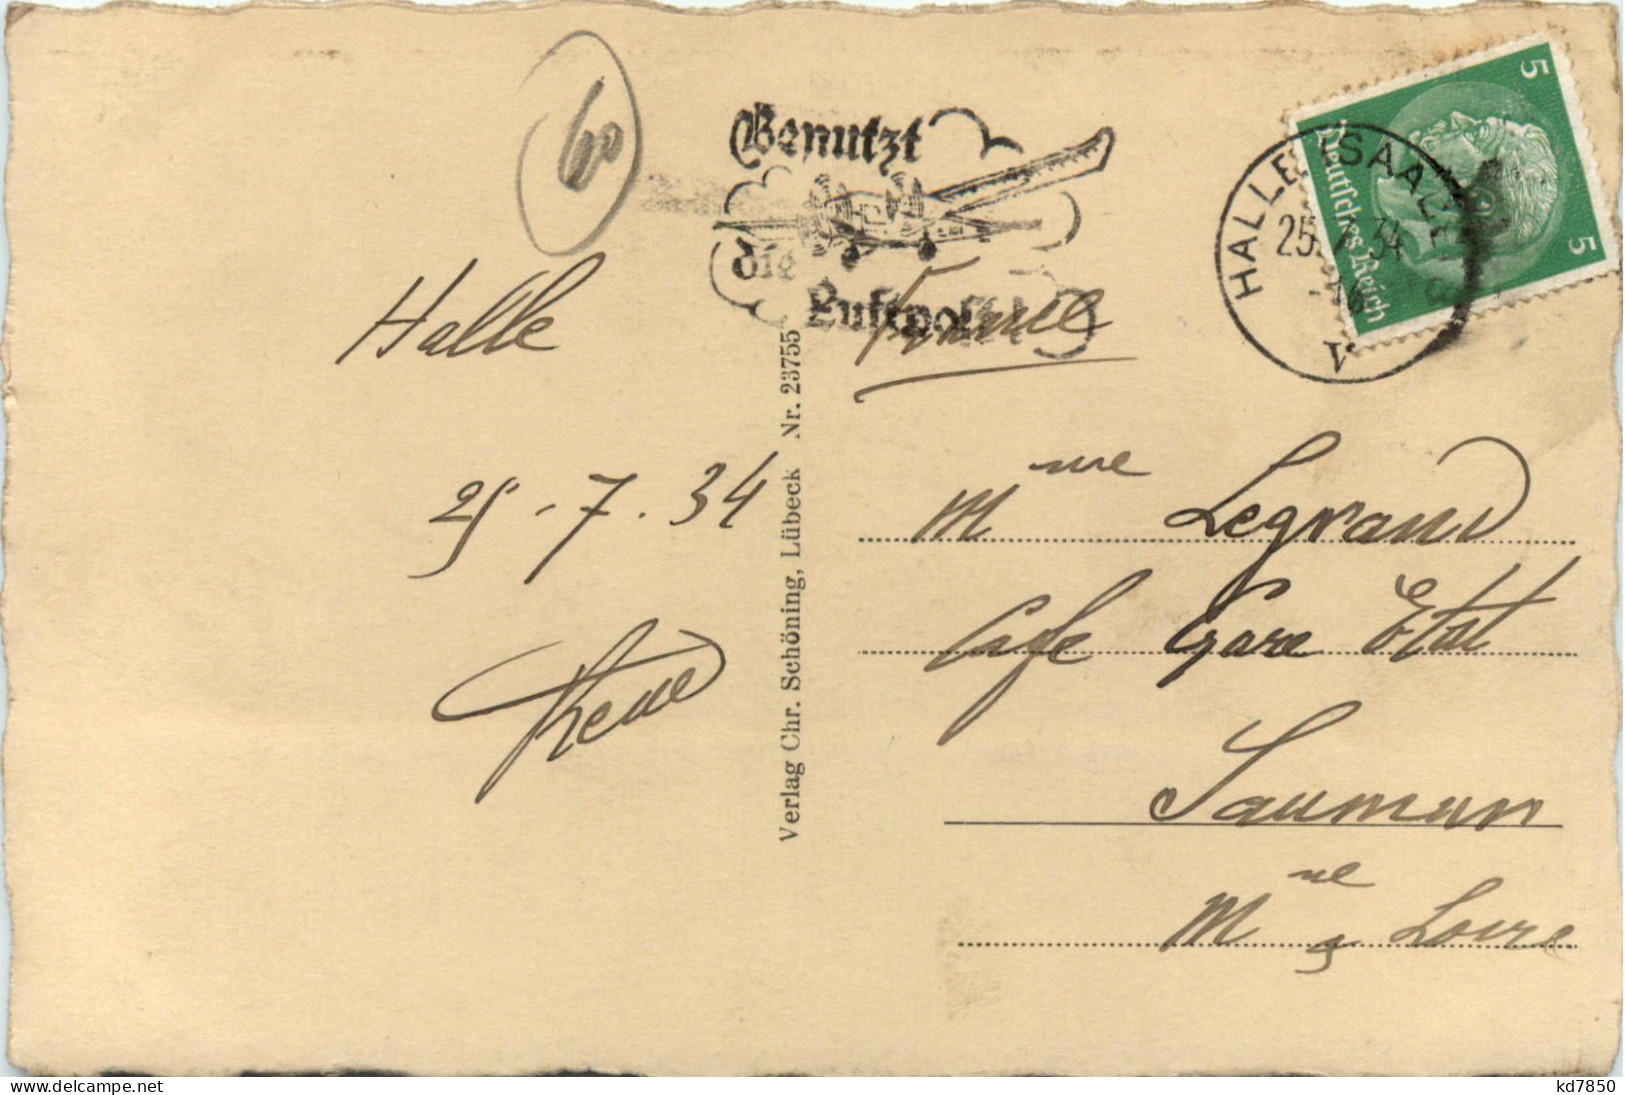 60
Benutzt
die
Luftpost
HALLE (SAALE)
25.7.34
Deutsches Reich
5
5
Halle
25-7.34
René
Verlag Chr. Schöning, Lübeck Nr. 23755
France
Mme Legrand
Café Gare Etat
Saumur
Mne & Loire
delcampe.net
kd7850